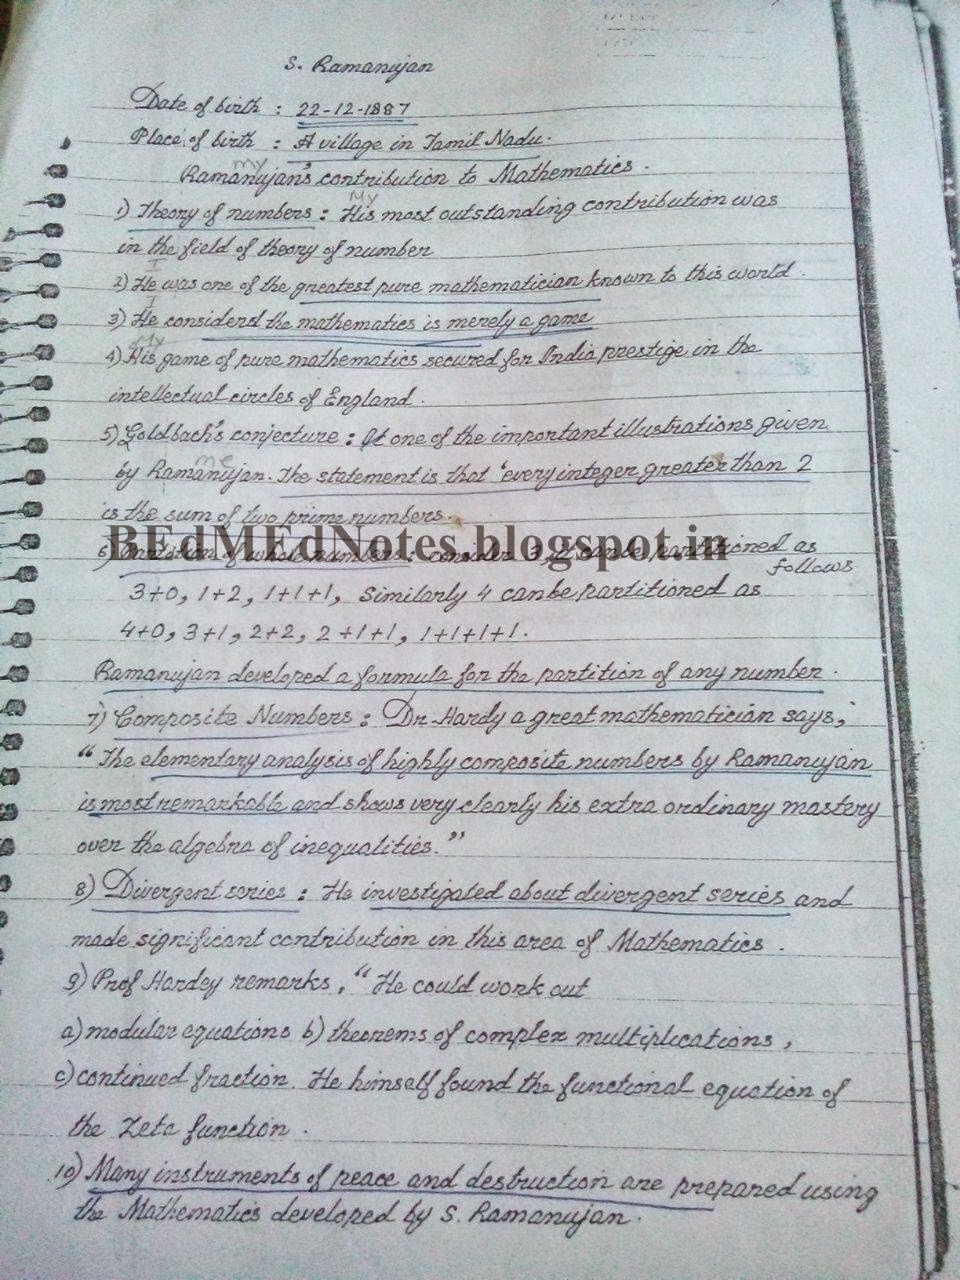 S. Ramanujan
Date of birth : 22-12-1887
Place of birth : A village in Tamil Nadu.
my
Ramanujan's contribution to Mathematics.
My
1) Theory of numbers : His most outstanding contribution was
in the field of theory of number
I
2) He was one of the greatest pure mathematician known to this world.
I
3) He considerd the mathematics is merely a game
My
4) His game of pure mathematics secured for India prestige in the
intellectual circles of England.
5) Goldbach's conjecture : It one of the important illustrations given
me
by Ramanujan. The statement is that 'every integer greater than 2
is the sum of two prime numbers.
BEdMEdNotes.blogspot.in
6) Partition of whole numbers : consider 3, it can be partitioned as
follows
3+0, 1+2, 1+1+1, Similarly 4 canbe partitioned as
4+0, 3+1, 2+2, 2+1+1, 1+1+1+1.
Ramanujan developed a formula for the partition of any number.
7) Composite Numbers : Dr. Hardy a great mathematician says,
"The elementary analysis of highly composite numbers by Ramanujan
is most remarkable and shows very clearly his extra ordinary mastery
over the algebra of inequalities."
8) Divergent series : He investigated about divergent series and
made significant contribution in this area of Mathematics.
9) Prof Hardey remarks, "He could work out
a) modular equations b) theorems of complex multiplications,
c) continued fraction. He himself found the functional equation of
the Zeta function.
10) Many instruments of peace and destruction are prepared using
the Mathematics developed by S. Ramanujan.